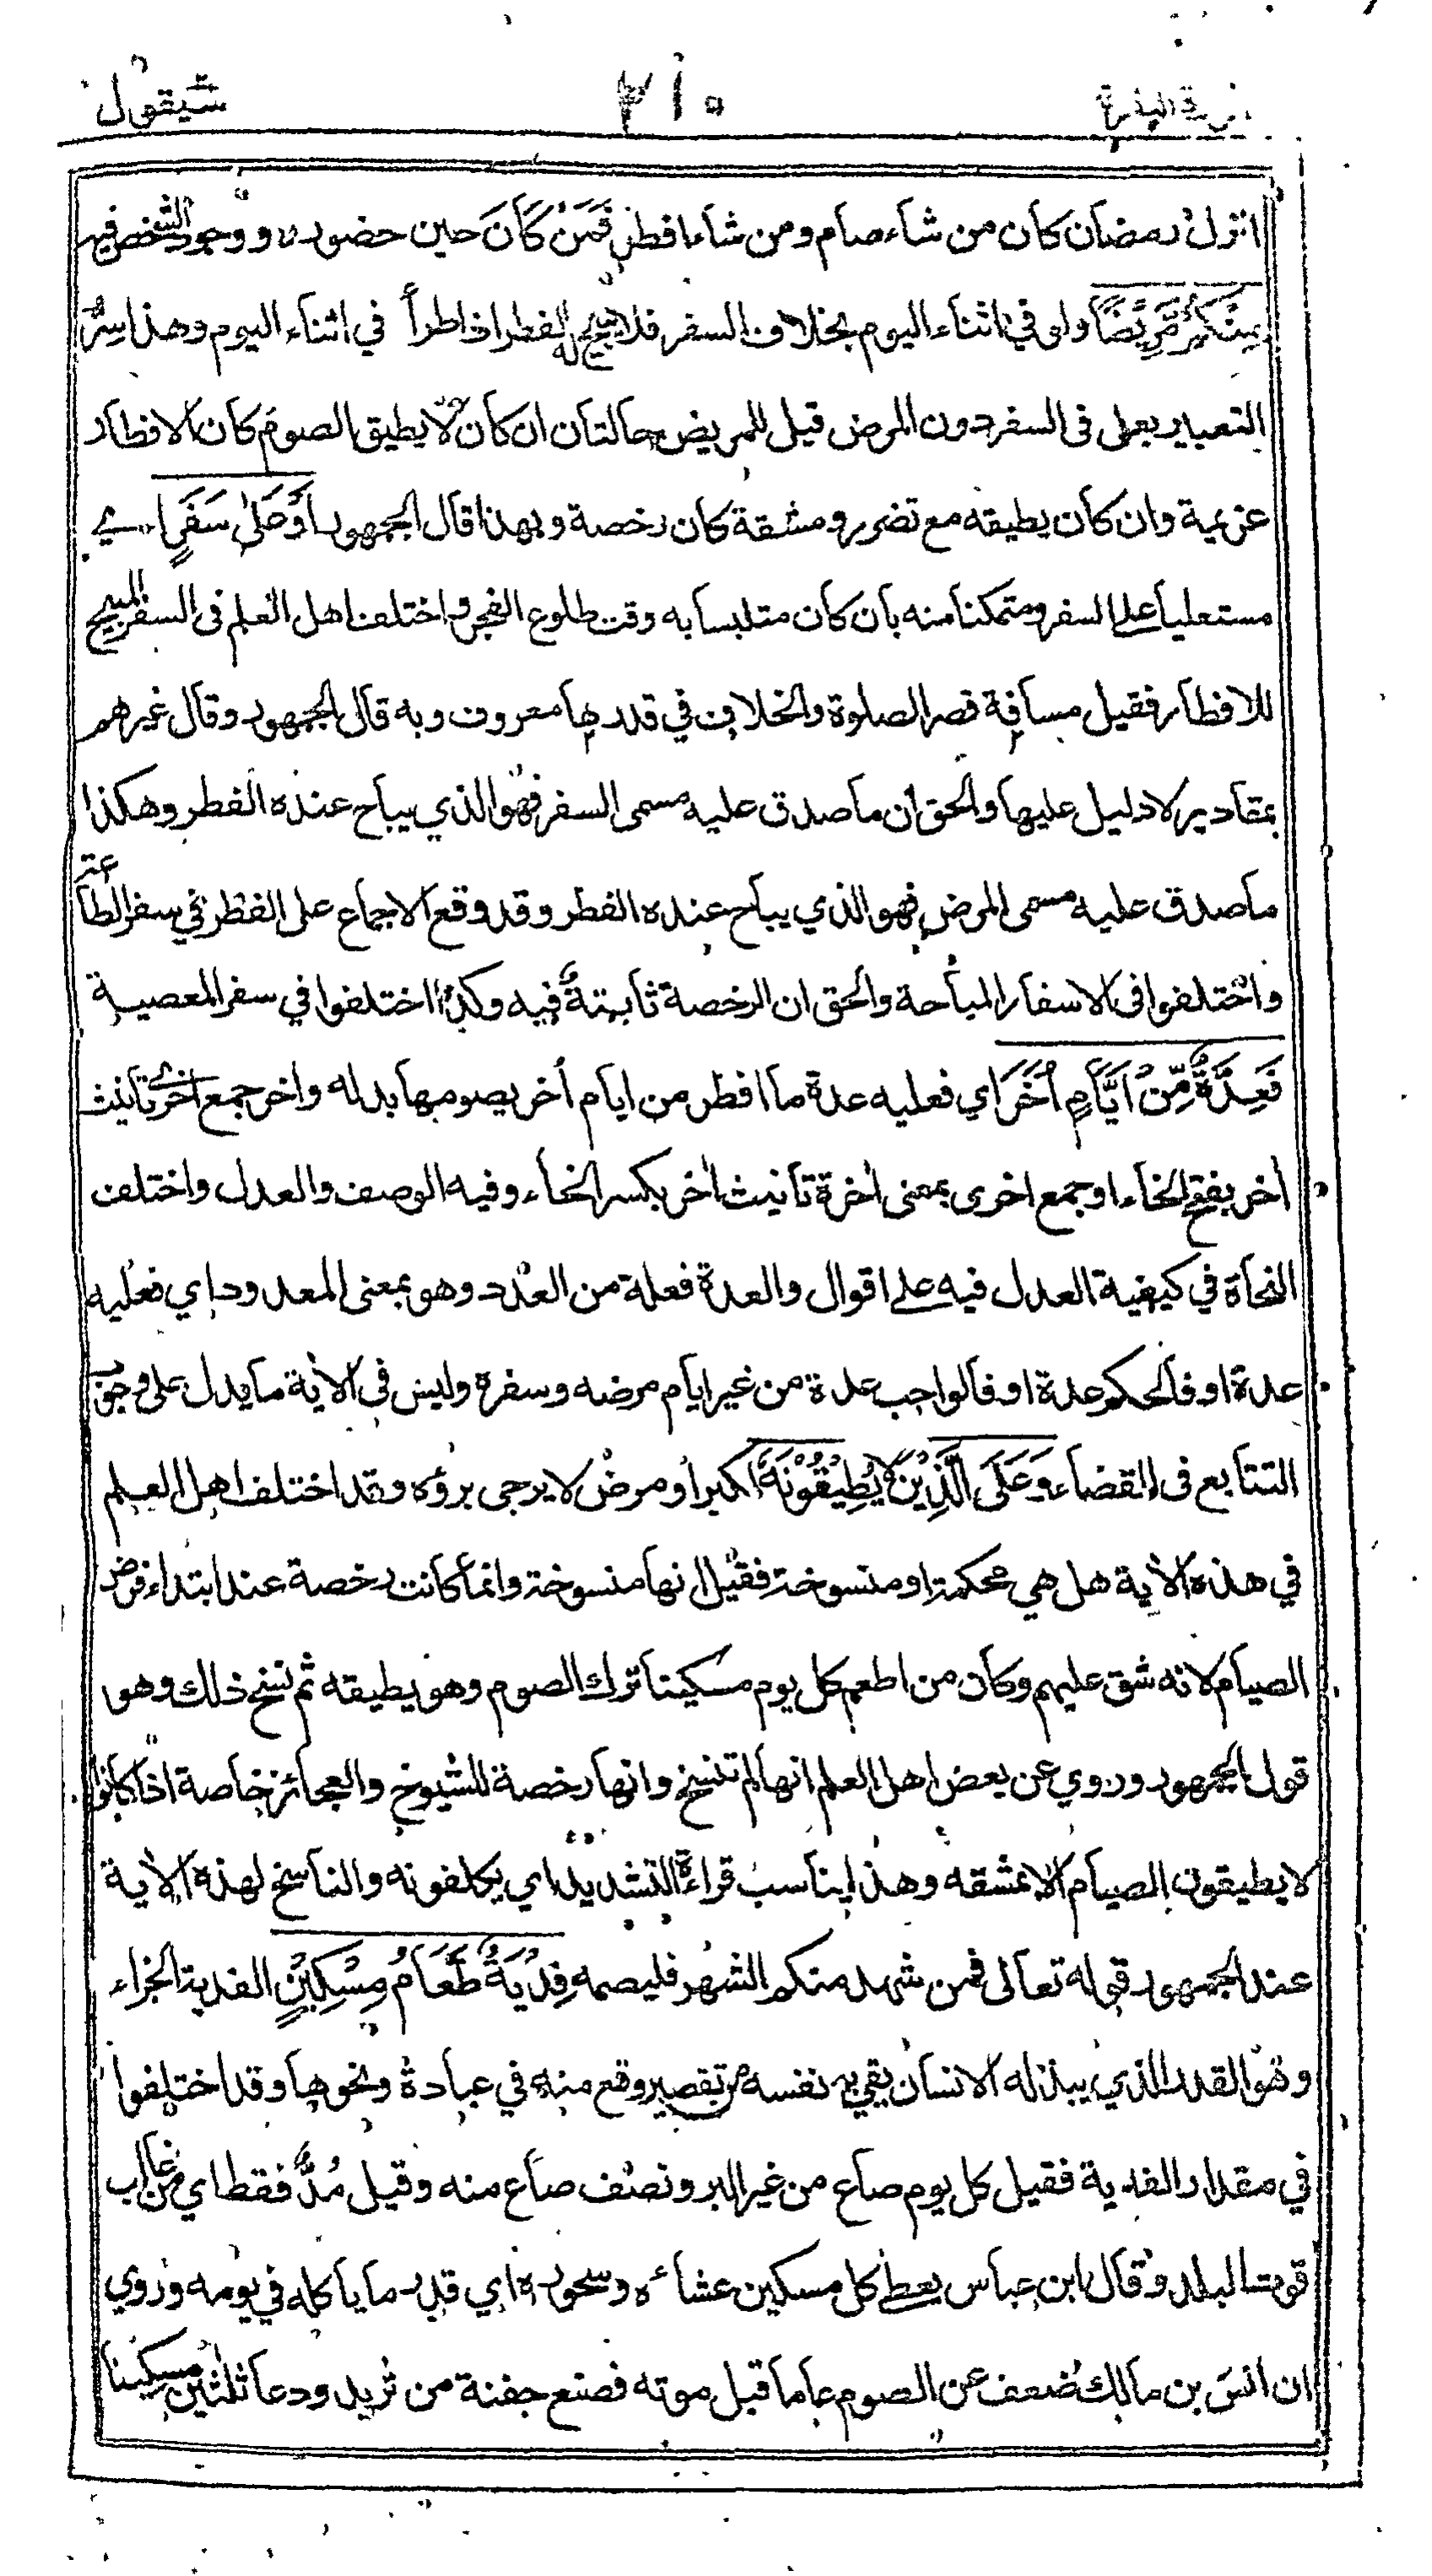 سورة البقرة ٢١٠ سيقول
انزل رمضان كان من شاء صام ومن شاء افطر فَمَنْ كَانَ حين حضوره ووجود الشخص فيه
مِنْكُمْ مَّرِيْضًا ولو في اثناء اليوم بخلاف السفر فلا يبيح له الفطر اذا طرأ في اثناء اليوم وهذا سِرُّ
التعبير بعلى في السفر دون المرض قيل للمريض حالتان ان كان لا يطيق الصوم كان الافطار
عزيمة وان كان يطيقه مع تضرر ومشقة كان رخصة وبهذا قال الجمهور اَوْ عَلٰى سَفَرٍ اي
مستعليا على السفر ومتمكنا منه بان كان متلبسا به وقت طلوع الفجر واختلف اهل العلم في السفر المبيح
للافطار فقيل مسافة قصر الصلوة والخلاف في قدرها معروف وبه قال الجمهور وقال غيرهم
بمقادير لا دليل عليها والحق ان ما صدق عليه مسمى السفر فهو الذي يباح عنده الفطر وهكذا
ما صدق عليه مسمى المرض فهو الذي يباح عنده الفطر وقد وقع الاجماع على الفطر في سفر الطاعة
واختلفوا في الاسفار المباحة والحق ان الرخصة ثابتة فيه وكذا اختلفوا في سفر المعصية
فَعِدَّةٌ مِّنْ اَيَّامٍ اُخَرَ اي فعليه عدة ما افطر من ايام أخر يصومها بدله واخر جمع اخرى تانيث
اخر بفتح الخاء او جمع اخرى بمعنى اٰخرة تانيث اٰخر بكسر الخاء وفيه الوصف والعدل واختلف
النحاة في كيفية العدل فيه على اقوال والعدة فعلة من العدد وهو بمعنى المعدود اي فعليه
عدة او فالحكم عدة او فالواجب عدة من غير ايام مرضه وسفره وليس في الاٰية ما يدل على وجوب
التتابع في القضاء وَعَلَى الَّذِيْنَ لا يُطِيْقُوْنَهٗ لكبر او مرض لا يرجى برؤه وقد اختلف اهل العلم
في هذه الاٰية هل هي محكمة او منسوخة فقيل انها منسوخة وانما كانت رخصة عند ابتداء فرض
الصيام لانه شق عليهم وكان من اطعم كل يوم مسكينا ترك الصوم وهو يطيقه ثم نسخ ذلك وهو
قول الجمهور وروي عن بعض اهل العلم انها لم تنسخ وانها رخصة للشيوخ والعجائز خاصة اذا كانوا
لا يطيقون الصيام الا بمشقه وهذا يناسب قراءة التشديد اي يكلفونه والناسخ لهذه الاٰية
عند الجمهور قوله تعالى فمن شهد منكم الشهر فليصمه فِدْيَةٌ طَعَامُ مِسْكِيْنٍ الفدية الجزاء
وهو القدر الذي يبذله الانسان يقي به نفسه من تقصير وقع منه في عبادة ونحوها وقد اختلفوا
في مقدار الفدية فقيل كل يوم صاع من غير البر ونصف صاع منه وقيل مُدٌّ فقط اي من غالب
قوت البلد وقال ابن عباس يعطى كل مسكين عشاءه وسحوره اي قدر ما يأكله في يومه وروي
ان انس بن مالك ضعف عن الصوم عاما قبل موته فصنع جفنة من ثريد ودعا ثلثين مسكينا